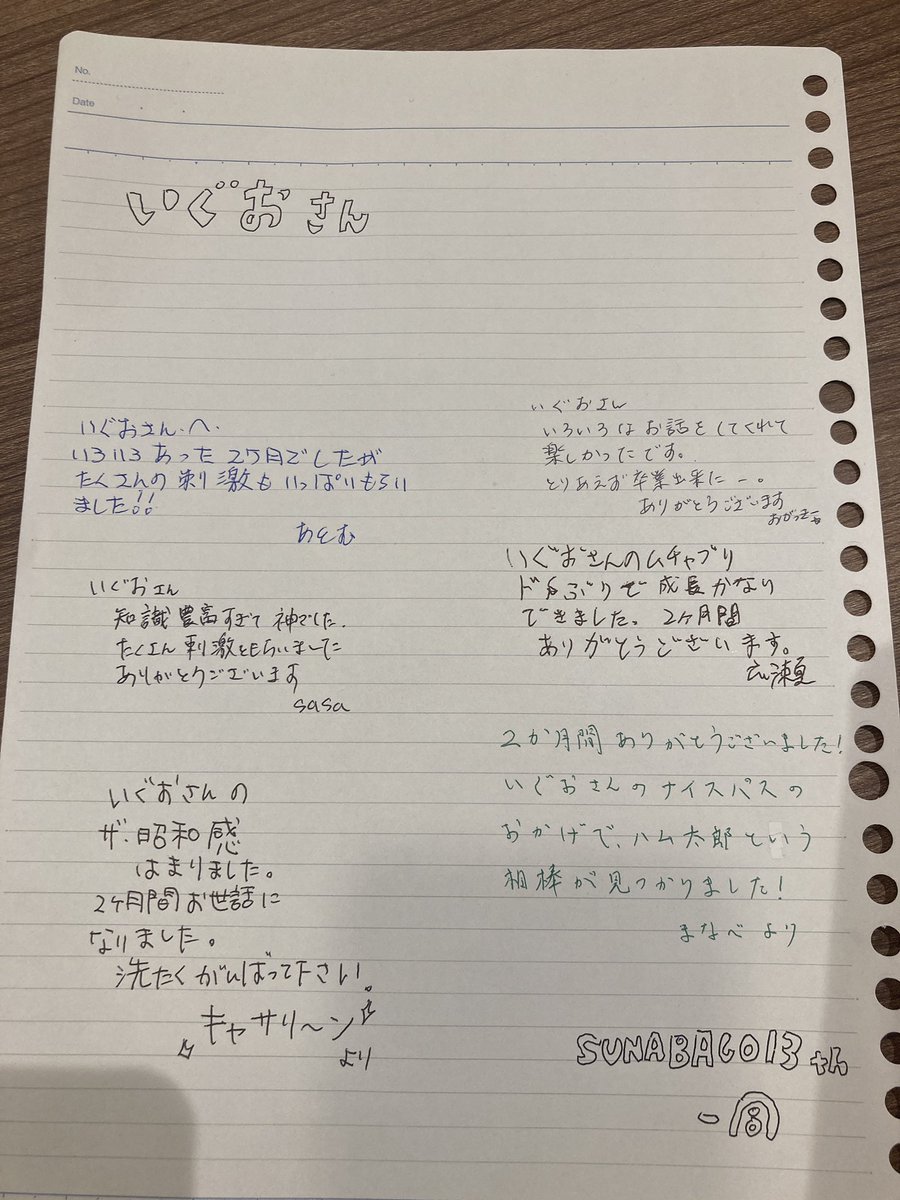 No.
Date
いぐおさん
いぐおさんへ.
いろいろあった2ヶ月でしたが
たくさんの刺激もいっぱいもらい
ました!!
あとむ
いぐおさん
いろいろはお話をしてくれて
楽しかったです。
とりあえず卒業出来にー。
ありがとうございます
おがっきー
いぐおさん
知識豊富すぎて神でした.
たくさん刺激をもらいました
ありがとうございます
sasa
いぐおさんのムチャブリ
ドタぶりで成長かなり
できました。2ヶ月間
ありがとうございます。
広瀬
いぐおさんの
ザ・昭和感
はまりました。
2ヶ月間お世話に
なりました。
洗たくがんばって下さい!
キャサリ〜ン
より
2か月間ありがとうございました!
いぐおさんのナイスパスの
おかげで、ハム太郎という
相棒が見つかりました!
まなべより
SUNABACO13
一同